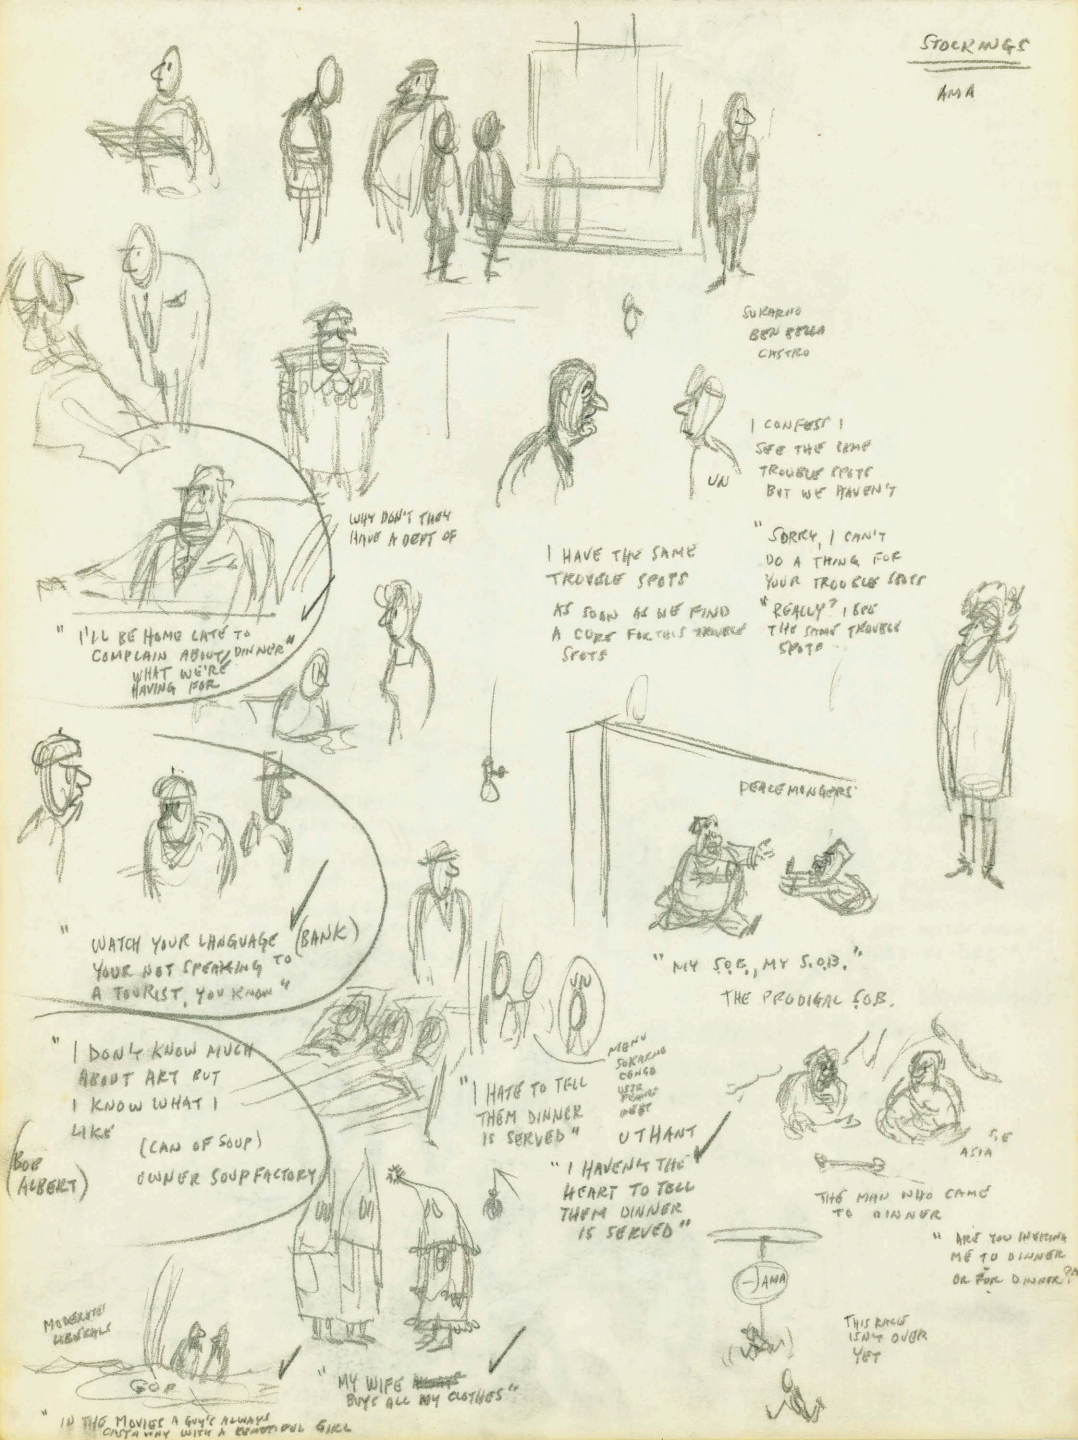 STOCKINGS
AMA
SUKARNO
BEN BELLA
CASTRO
I CONFESS I
SEE THE SAME
TROUBLE SPOTS
BUT WE HAVEN'T
UN
WHY DON'T THEY
HAVE A DEPT OF
I HAVE THE SAME
TROUBLE SPOTS
AS SOON AS WE FIND
A CURE FOR THIS TROUBLE
SPOTS
"SORRY, I CAN'T
DO A THING FOR
YOUR TROUBLE SPOTS
"REALLY? I SEE
THE SAME TROUBLE
SPOTS
"I'LL BE HOME LATE TO
COMPLAIN ABOUT DINNER"
WHAT WE'RE
HAVING FOR
PEACEMONGERS
"WATCH YOUR LANGUAGE (BANK)
YOUR NOT SPEAKING TO
A TOURIST, YOU KNOW"
"MY S.O.B., MY S.O.B."
THE PRODIGAL S.O.B.
UN
MENU
SUKARNO
CONGO
MEET
"I DON'T KNOW MUCH
ABOUT ART BUT
I KNOW WHAT I
LIKE
(CAN OF SOUP)
(BOB
ALBERT)
OWNER SOUP FACTORY
"I HATE TO TELL
THEM DINNER
IS SERVED"
U THANT
"I HAVEN'T THE
HEART TO TELL
THEM DINNER
IS SERVED"
S.E
ASIA
THE MAN WHO CAME
TO DINNER
"ARE YOU INVITING
ME TO DINNER
OR FOR DINNER?"
AMA
THIS RACE
ISN'T OVER
YET
MODERATE
LIBERALS
GOP
"MY WIFE
BUYS ALL MY CLOTHES"
"IN THE MOVIES A GUY'S ALWAYS
CASTAWAY WITH A BEAUTIFUL GIRL